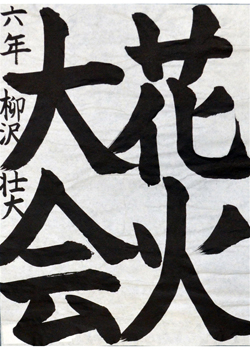 花火
大会
六年 柳沢 壮大